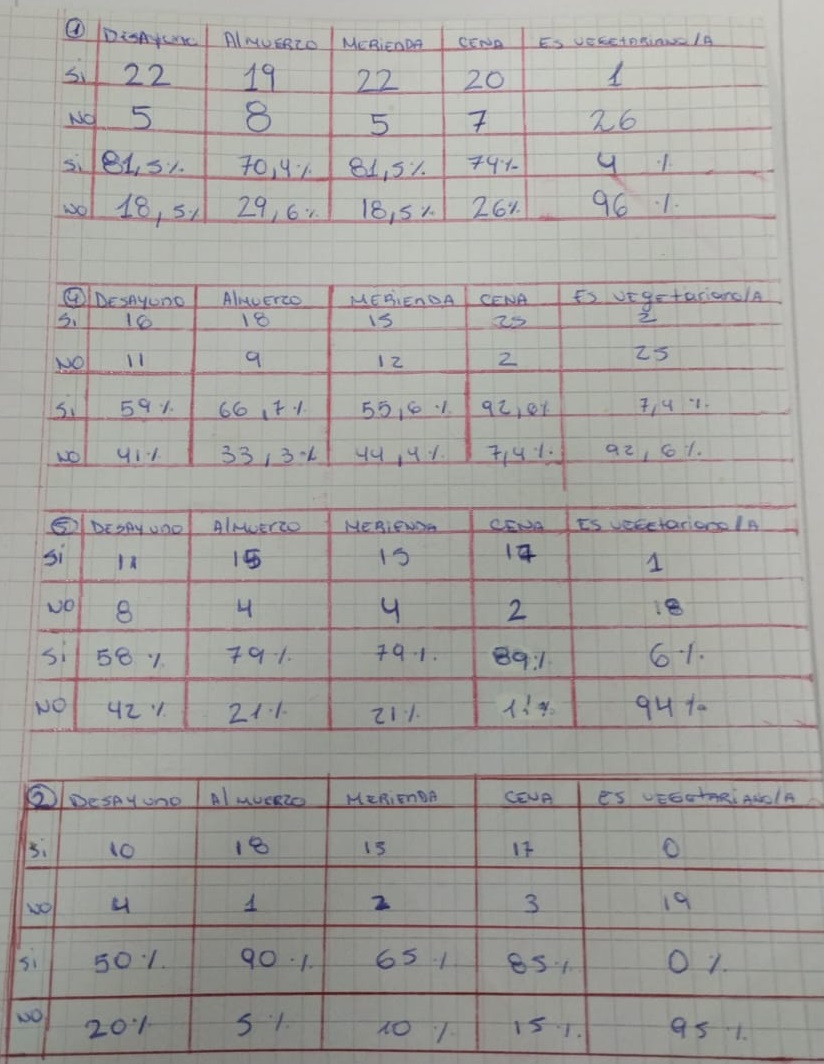 ① DESAYUNO ALMUERZO MERIENDA CENA ES VEGETARIANO/A
Si 22 19 22 20 1
NO 5 8 5 7 26
Si 81,5% 70,4% 81,5% 74% 4 %
NO 18,5% 29,6% 18,5% 26% 96 %
④ DESAYUNO AlMUERZO MERIENDA CENA ES vegetariano/A
Si 16 18 15 25 2
NO 11 9 12 2 25
Si 59% 66,7% 55,6% 92,6% 7,4 %
NO 41% 33,3% 44,4% 7,4% 92,6%
⑤ DESAYUNO AlMUERZO MERIENDA CENA ES VEGEtariano/A
Si 11 15 15 17 1
NO 8 4 4 2 18
Si 58 % 79% 79% 89% 6%
NO 42 % 21% 21% 11% 94%
② DESAYUNO AlMUERZO MERIENDA CENA ES VEGEtARIANO/A
Si 10 18 13 17 0
NO 4 1 2 3 19
Si 50% 90% 65% 85% 0 %
NO 20% 5% 10 % 15% 95%